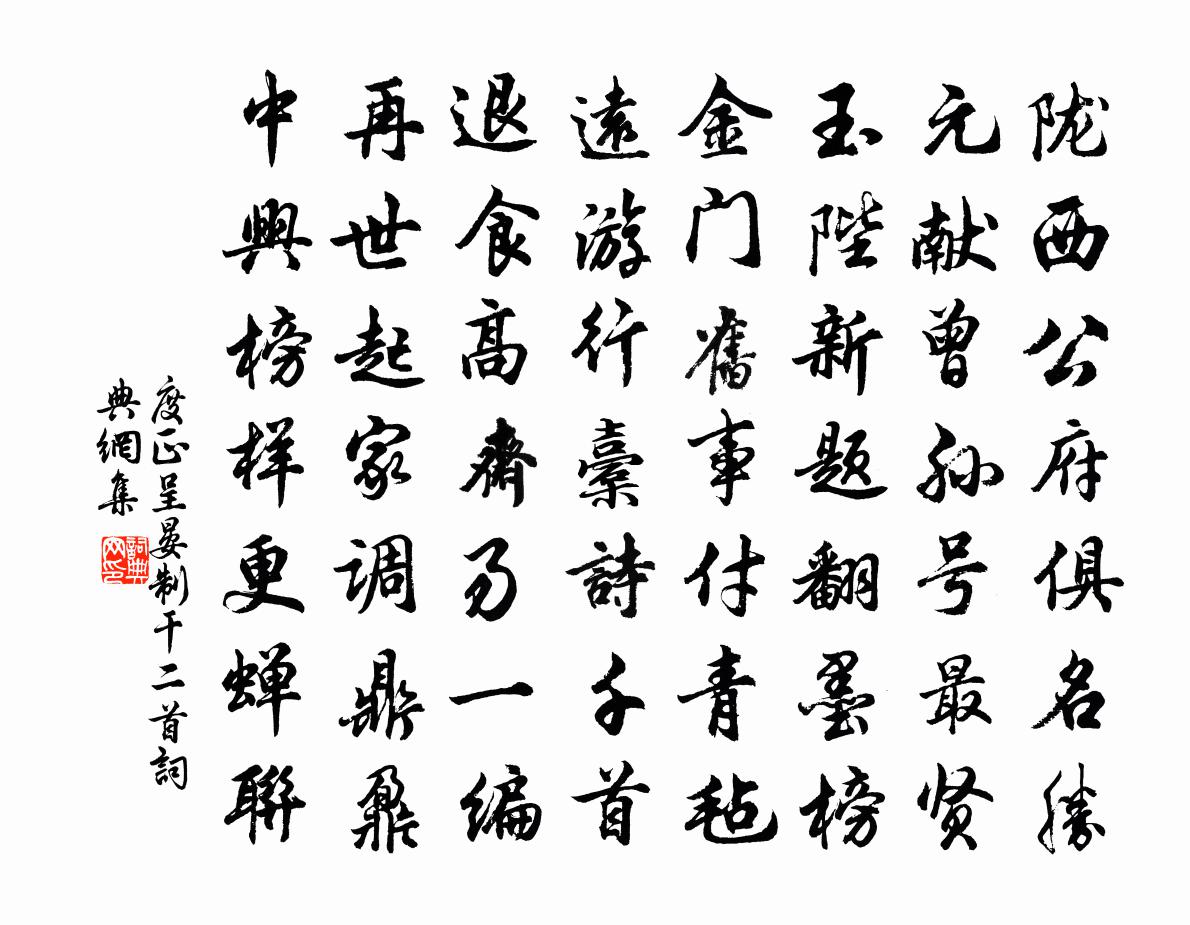 陇西公府俱名勝
元献曾孙号最贤
玉陛新题翻墨榜
金门舊事付青毡
遠游行橐詩千首
退食高齋易一编
再世起家调鼎鼐
中興榜样更蝉聯
度正呈晏制干二首詞
典網集
詞典网印